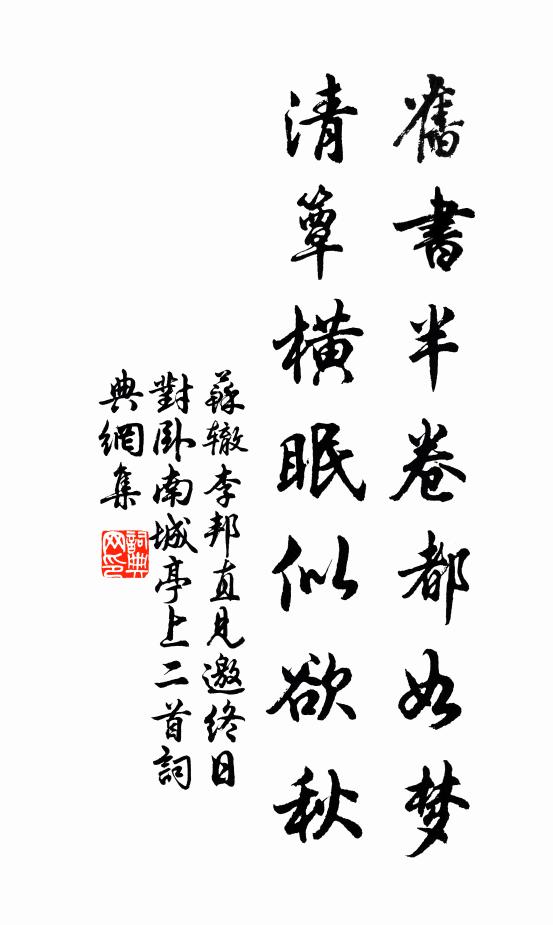 舊書半卷都如夢
清簟橫眠似欲秋
蘇轍李邦直見邀終日
對卧南城亭上二首詞
典網集
詞典
网印